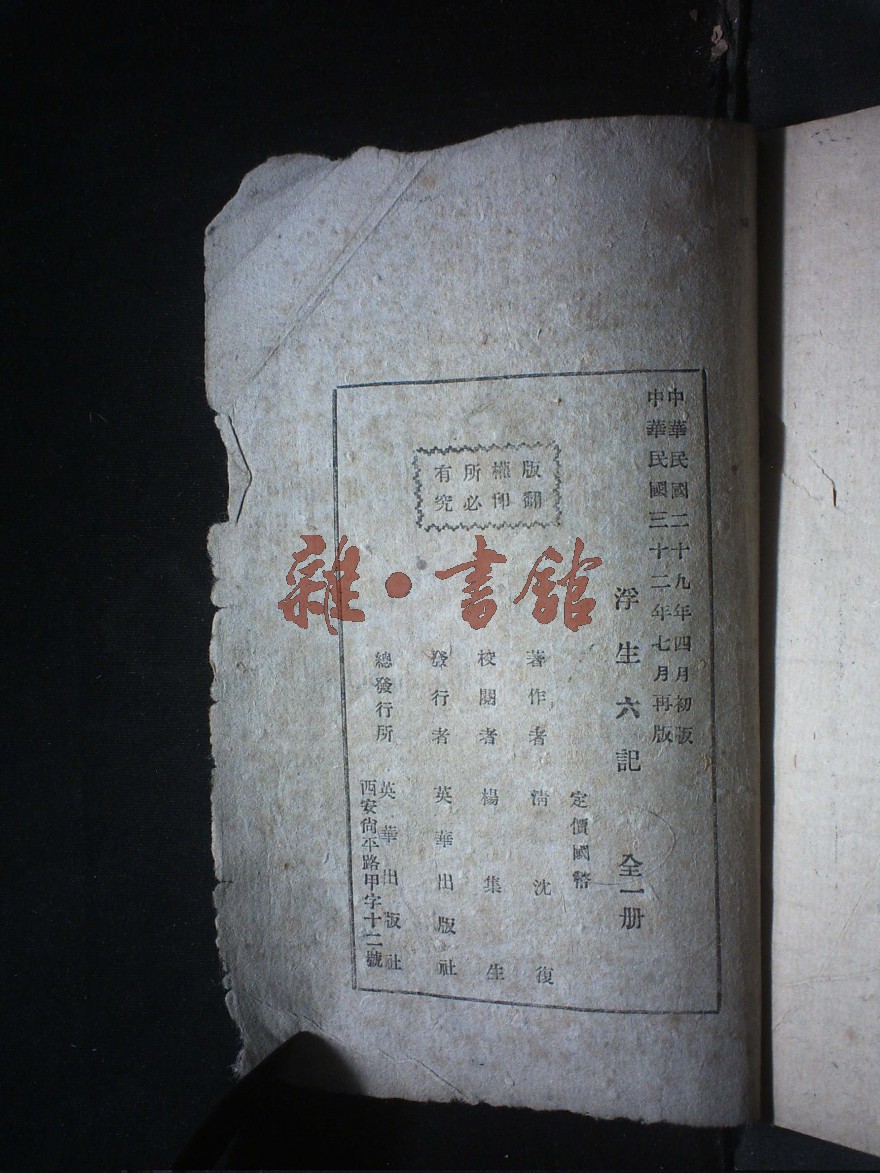 中華民國二十九年四月初版
中華民國三十二年七月再版
浮生六記 全一册
定價國幣
著作者 清 沈復
校閱者 楊集生
發行者 英華出版社
總發行所 英華出版社
西安尙平路甲字十二號
版權所有
翻印必究
雜·書館